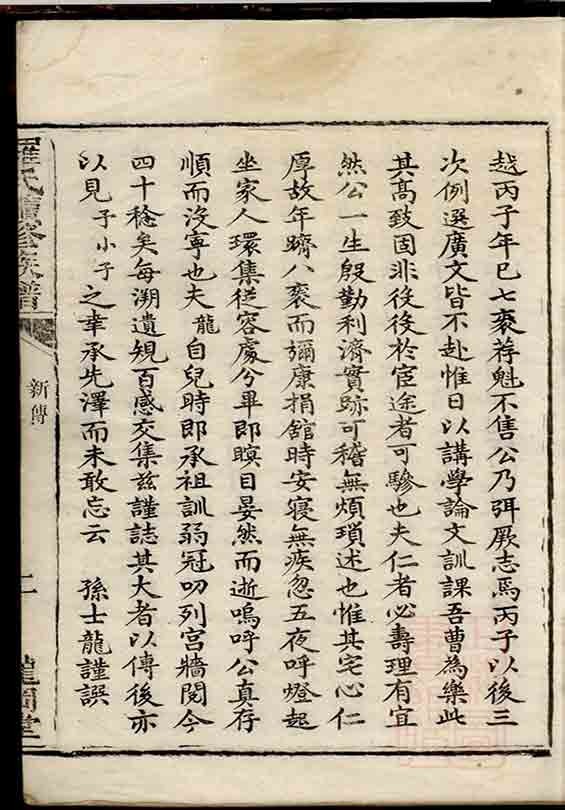 越丙子年巳七袠荐魁不售公乃弭厥志焉丙子以後三
次例選廣文皆不赴惟日以講學論文訓課吾曹為樂此
其高致固非役役於宦途者可驂也夫仁者必壽理有宜
然公一生殷勤利濟實跡可稽無煩瑣述也惟其宅心仁
厚故年躋八袠而彌康捐館時安寝無疾忽五夜呼燈起
坐家人環集從容處分畢即瞑目晏然而逝嗚呼公真存
順而沒寧也夫龍自兒時即承祖訓弱冠叨列宮牆閱今
四十稔矣每溯遺規百感交集玆謹誌其大者以傳後亦
以見子小子之幸承先澤而未敢忘云 孫士龍謹譔
羅氏續修族譜
新傳
二